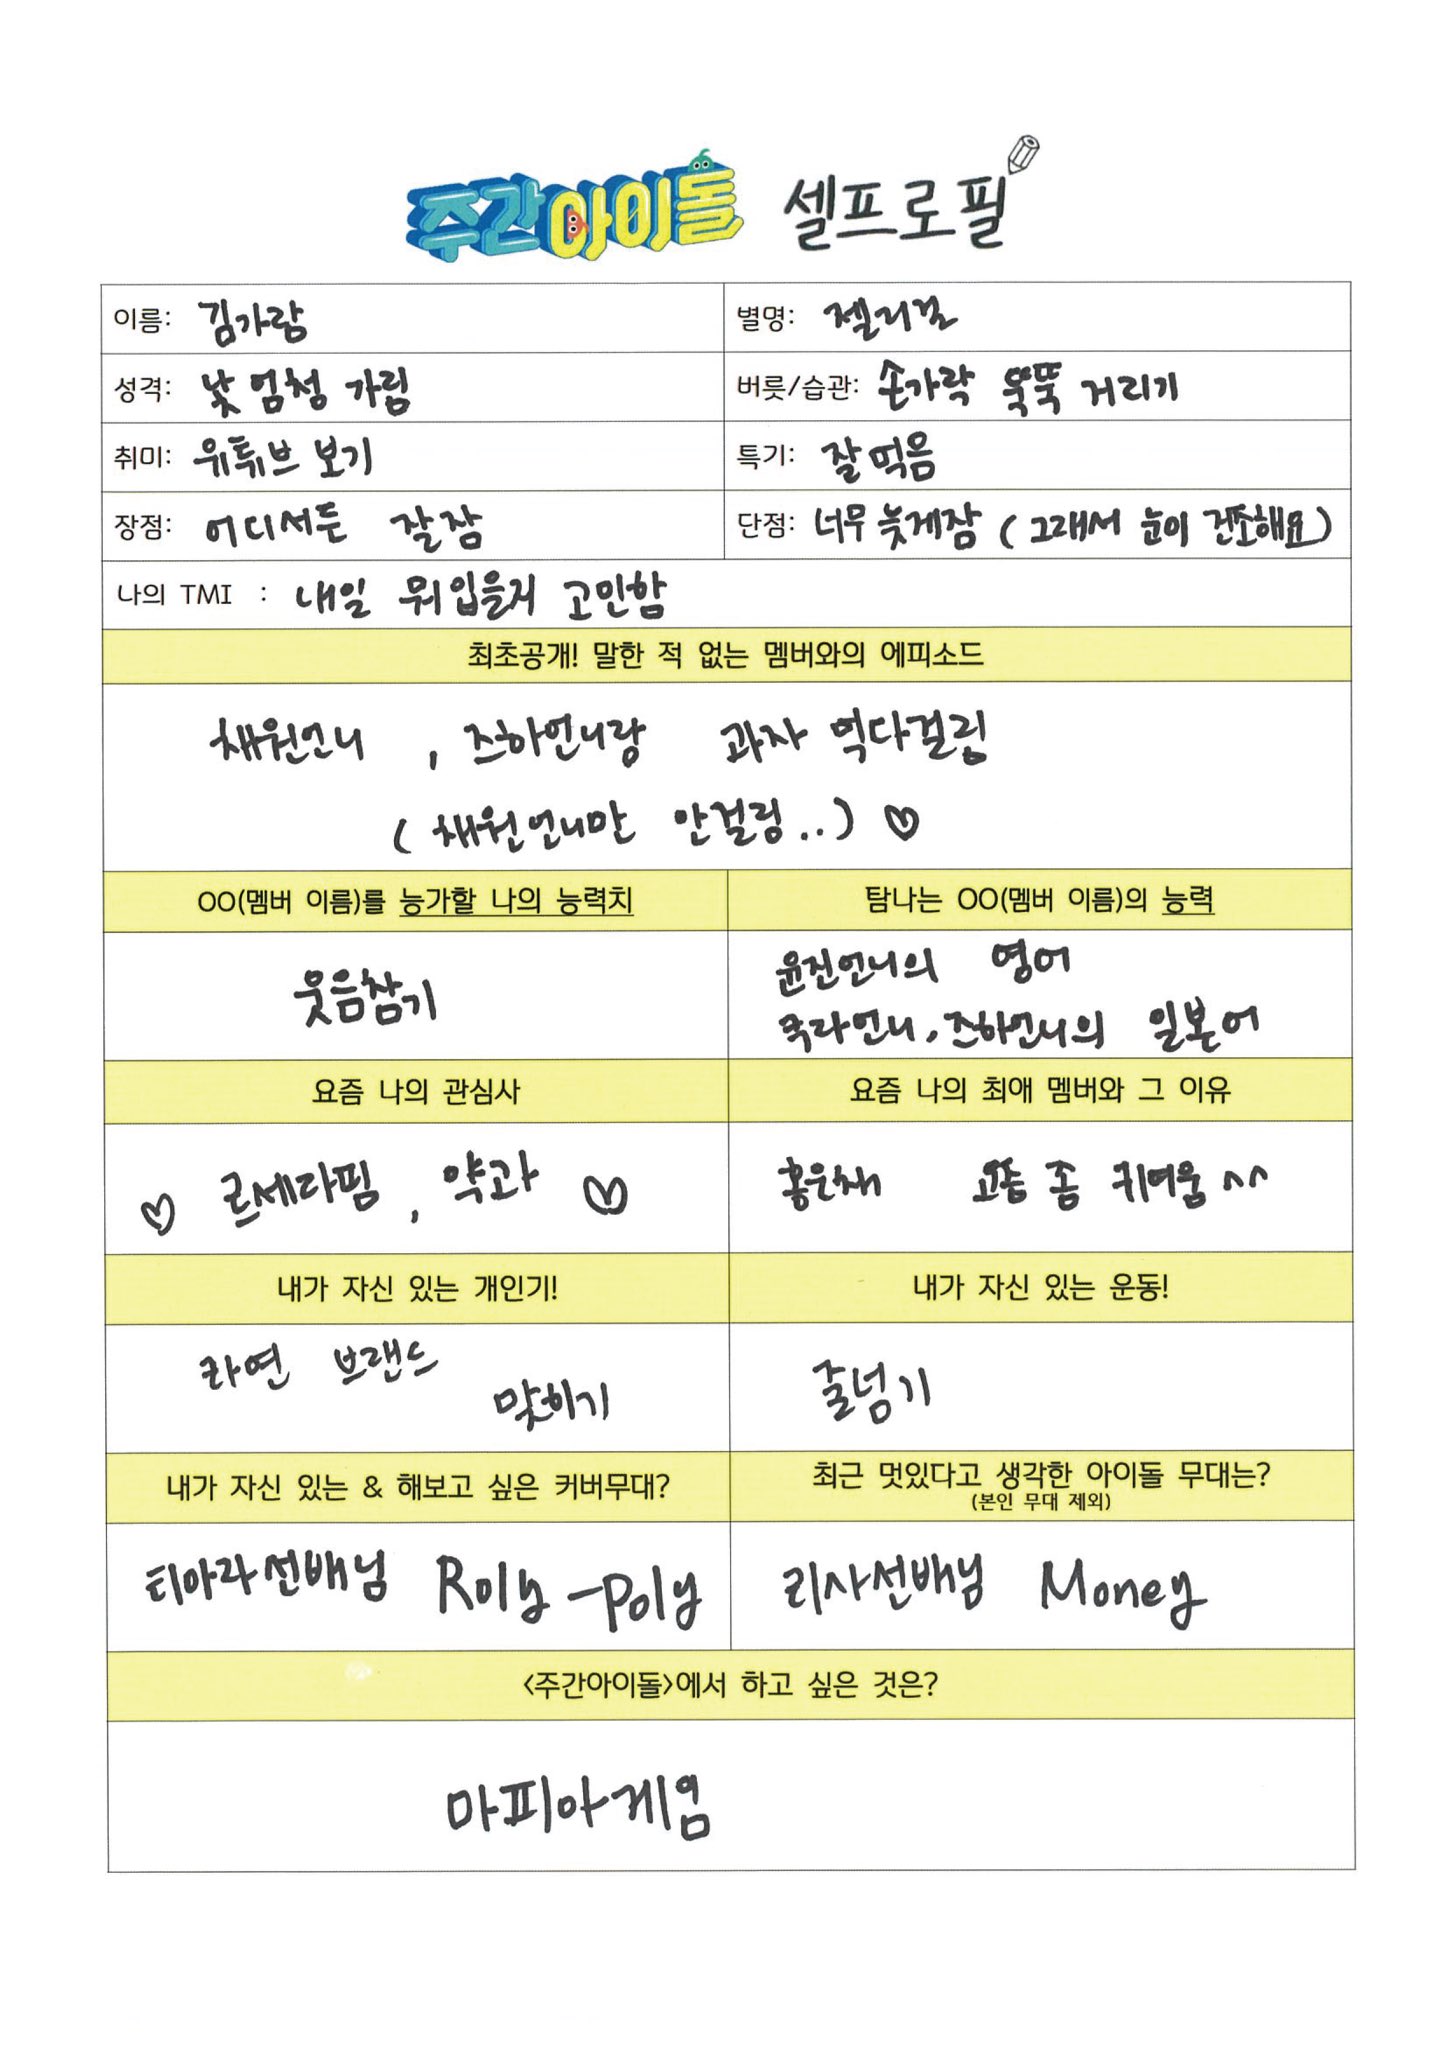 주간아이돌 셀프로필
이름: 김가람
별명: 젤리걸
성격: 낯 엄청 가림
버릇/습관: 손가락 뚝뚝 거리기
취미: 유튜브 보기
특기: 잘먹음
장점: 어디서든 잘잠
단점: 너무 늦게잠 (그래서 눈이 건조해요)
나의 TMI : 내일 뭐입을지 고민함
최초공개! 말한 적 없는 멤버와의 에피소드
채원언니 , 즈하언니랑 과자 먹다걸림
( 채원언니만 안걸림..) ♡
OO(멤버 이름)를 능가할 나의 능력치
탐나는 OO(멤버 이름)의 능력
웃음참기
윤진언니의 영어
쿠라언니, 즈하언니의 일본어
요즘 나의 관심사
요즘 나의 최애 멤버와 그 이유
♡ 르세라핌 , 약과 ♡
홍은채 요즘 좀 귀여움 ^^
내가 자신 있는 개인기!
내가 자신 있는 운동!
라면 브랜드
맞히기
줄넘기
내가 자신 있는 & 해보고 싶은 커버무대?
최근 멋있다고 생각한 아이돌 무대는?
(본인 무대 제외)
티아라선배님 Roly-poly
리사선배님 Money
<주간아이돌>에서 하고 싶은 것은?
마피아게임